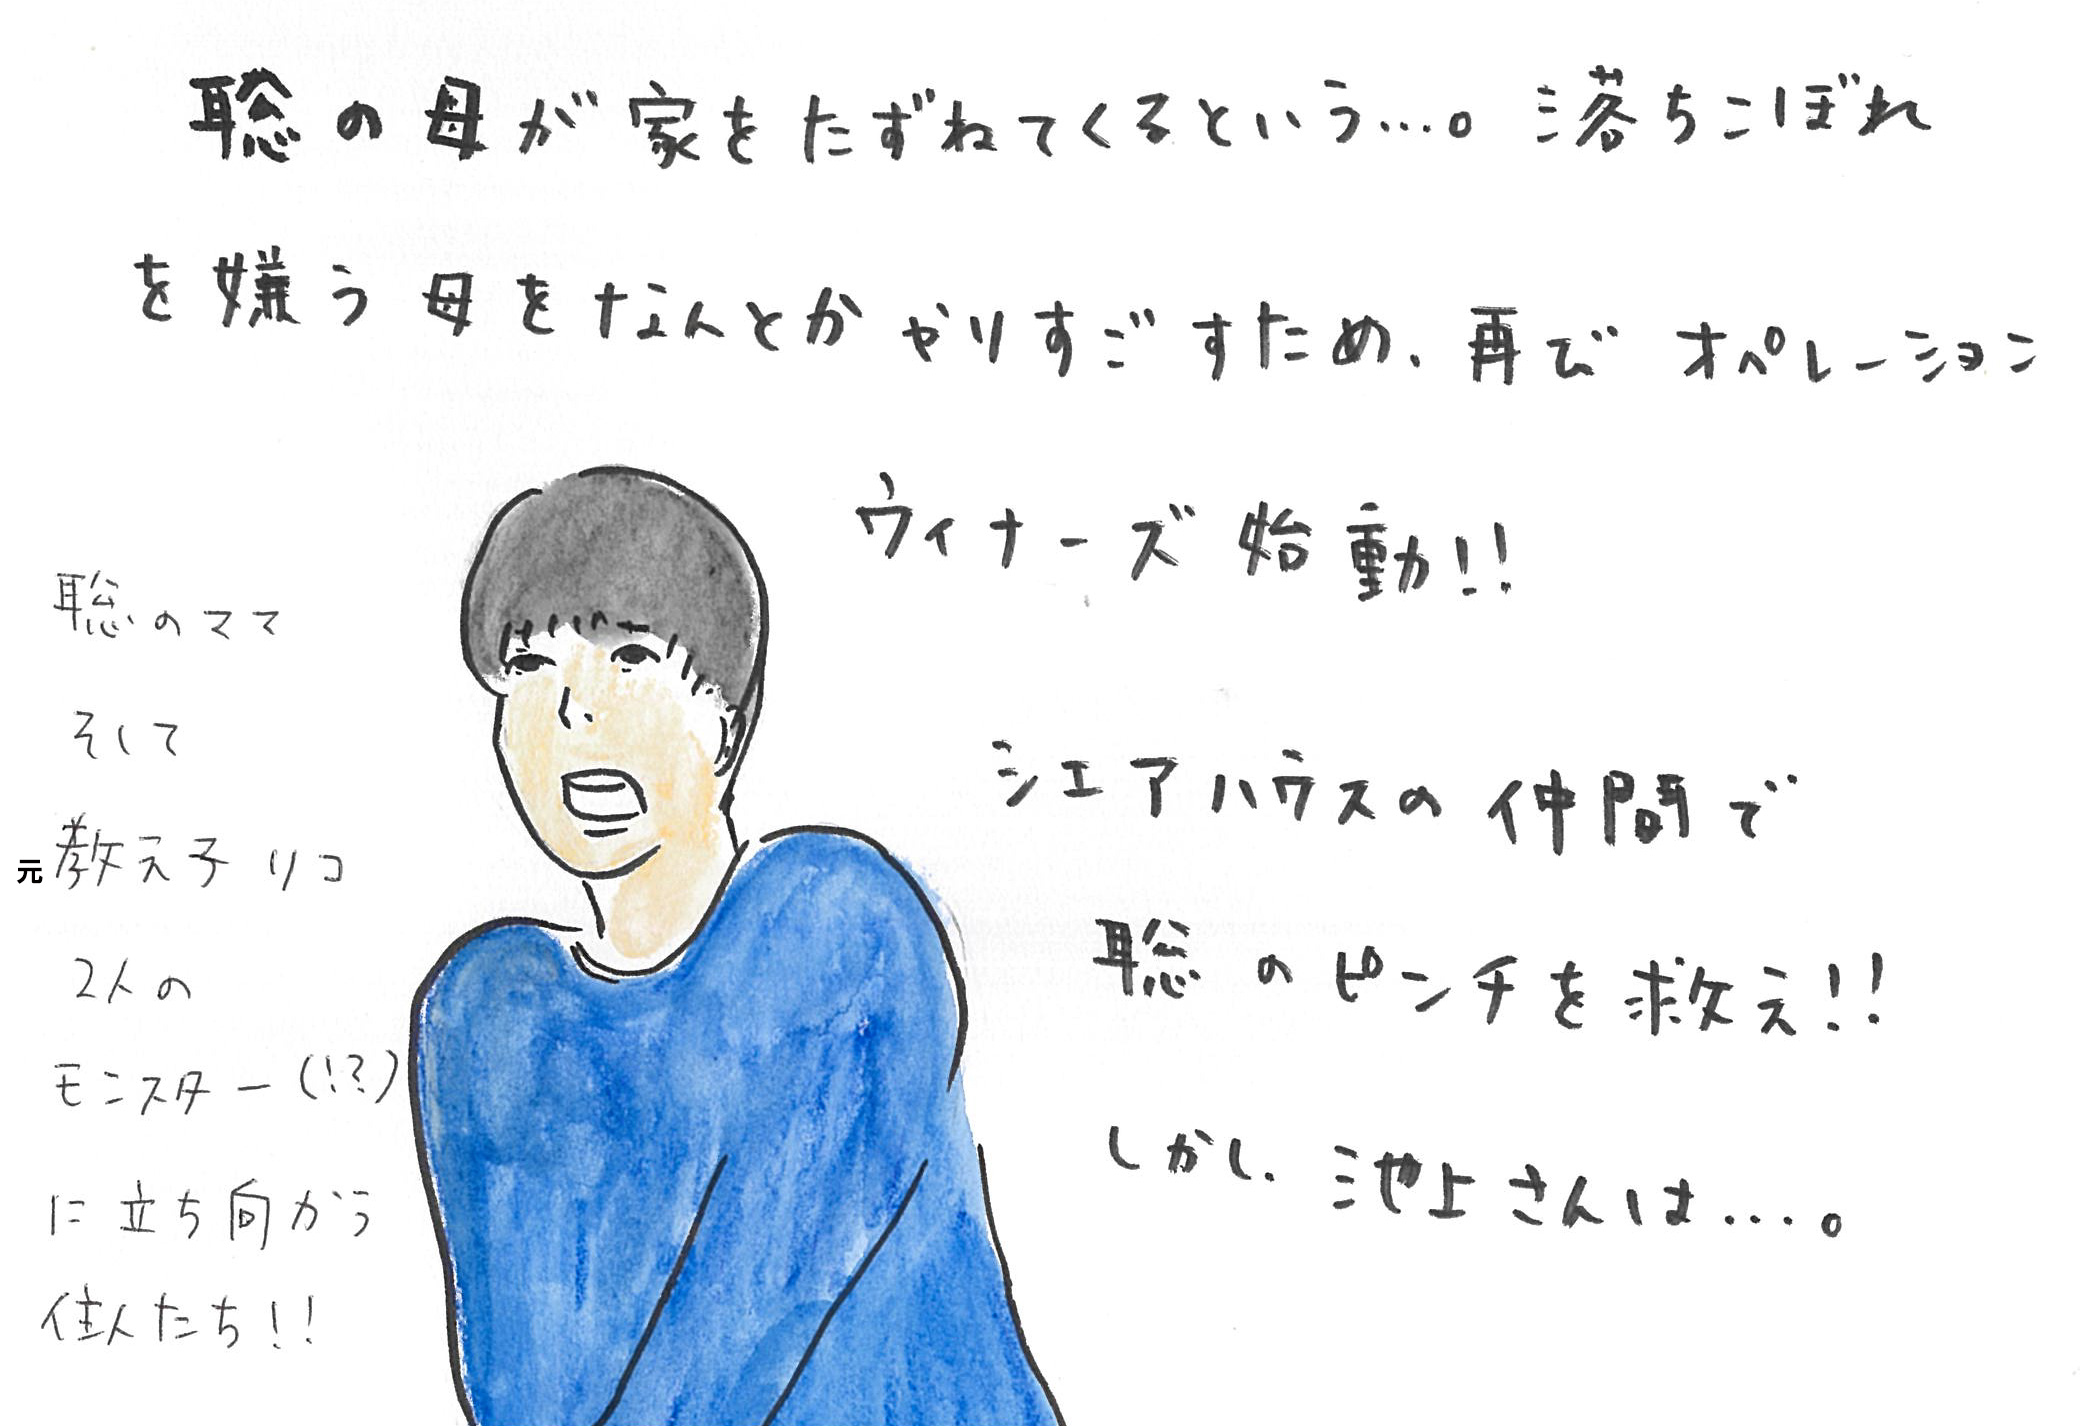 聡の母が家をたずねてくるという…。落ちこぼれ
を嫌う母をなんとかやりすごすため、再びオペレーション
ウィナーズ始動!!
シェアハウスの仲間で
聡のピンチを救え!!
しかし、池上さんは…。
聡のママ
そして
元教え子リコ
2人の
モンスター(!?)
に立ち向かう
住人たち!!